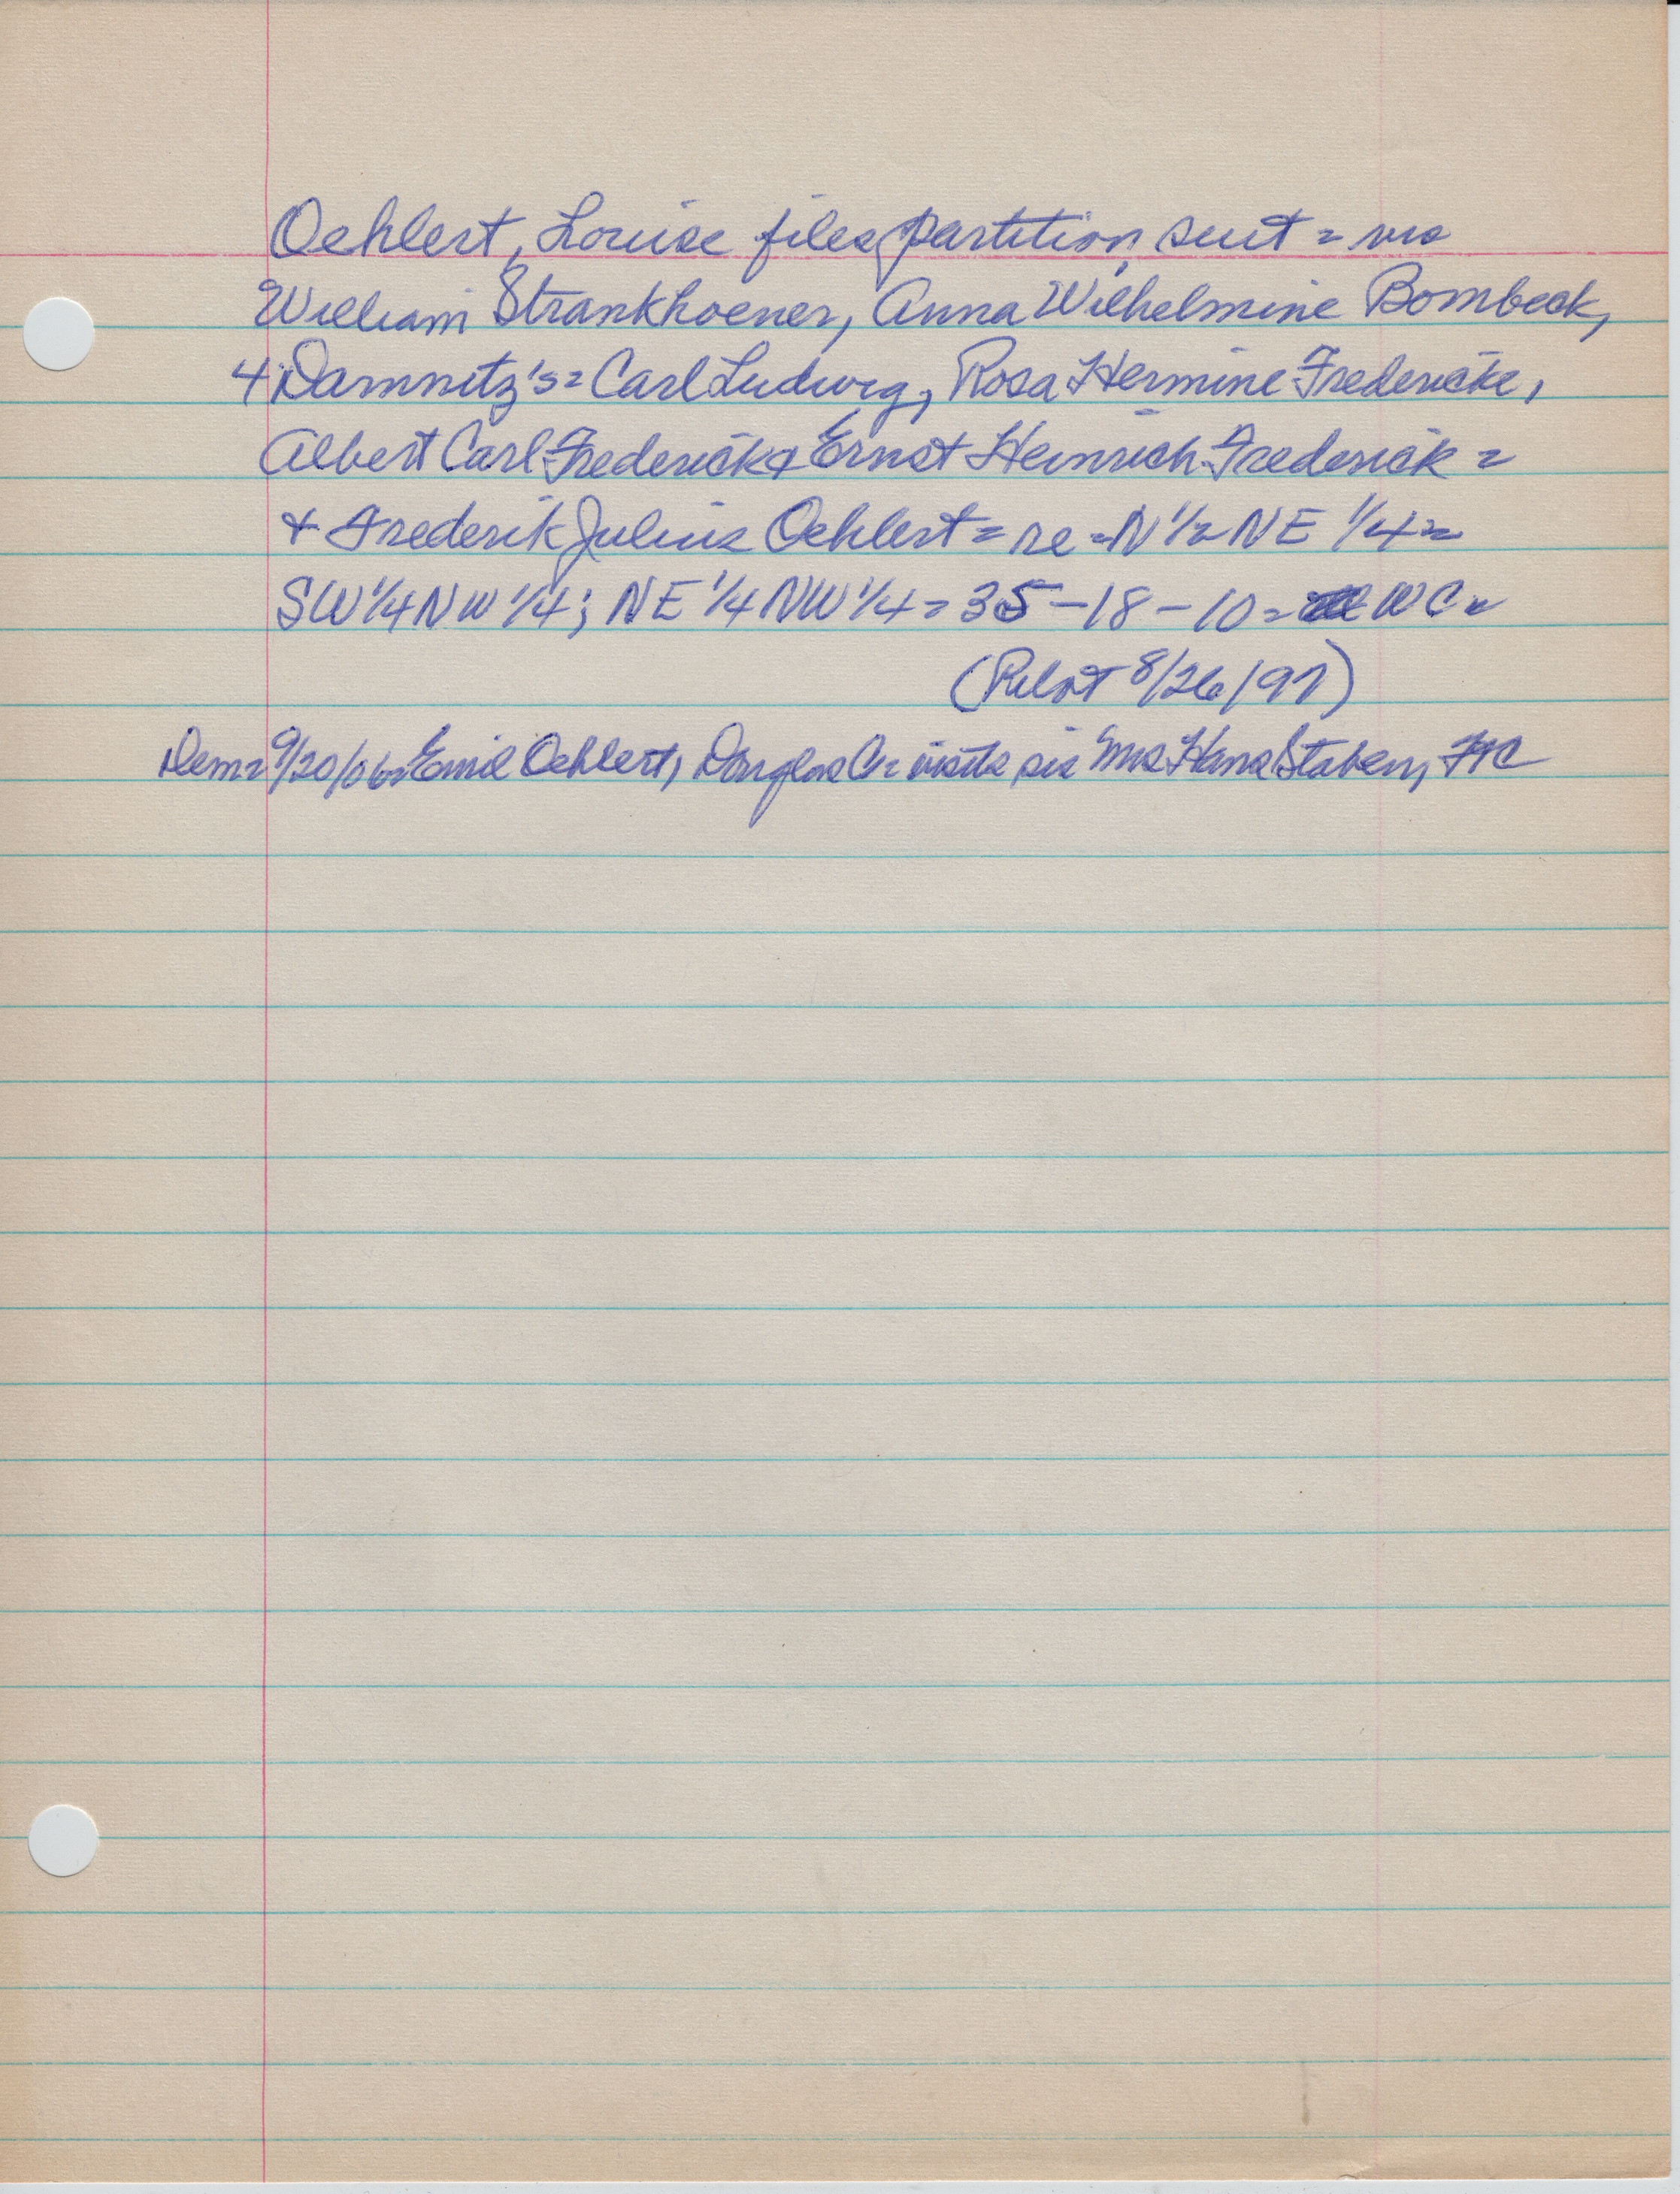 Oehlert, Louise files partition suit = vrs
William Strankhoener, Anna Wilhelmine Bombeck,
4 Damnitz's = Carl Ludwig, Rosa Hermine Fredericke,
Albert Carl Frederick & Ernst Heinrich Frederick =
& Frederik Julius Oehlert = re - N 1/2 NE 1/4 =
SW 1/4 NW 1/4; NE 1/4 NW 1/4 = 35-18-10 = WC =
(Pilot 8/26/97)
Dem = 9/20/06 = Emil Oehlert, Douglas C = visits sis Mrs Hans Staben, FtC